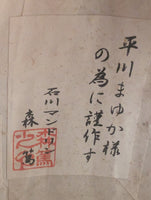 平川まゆか様
の為に謹作す
石川マンドリン
森篤